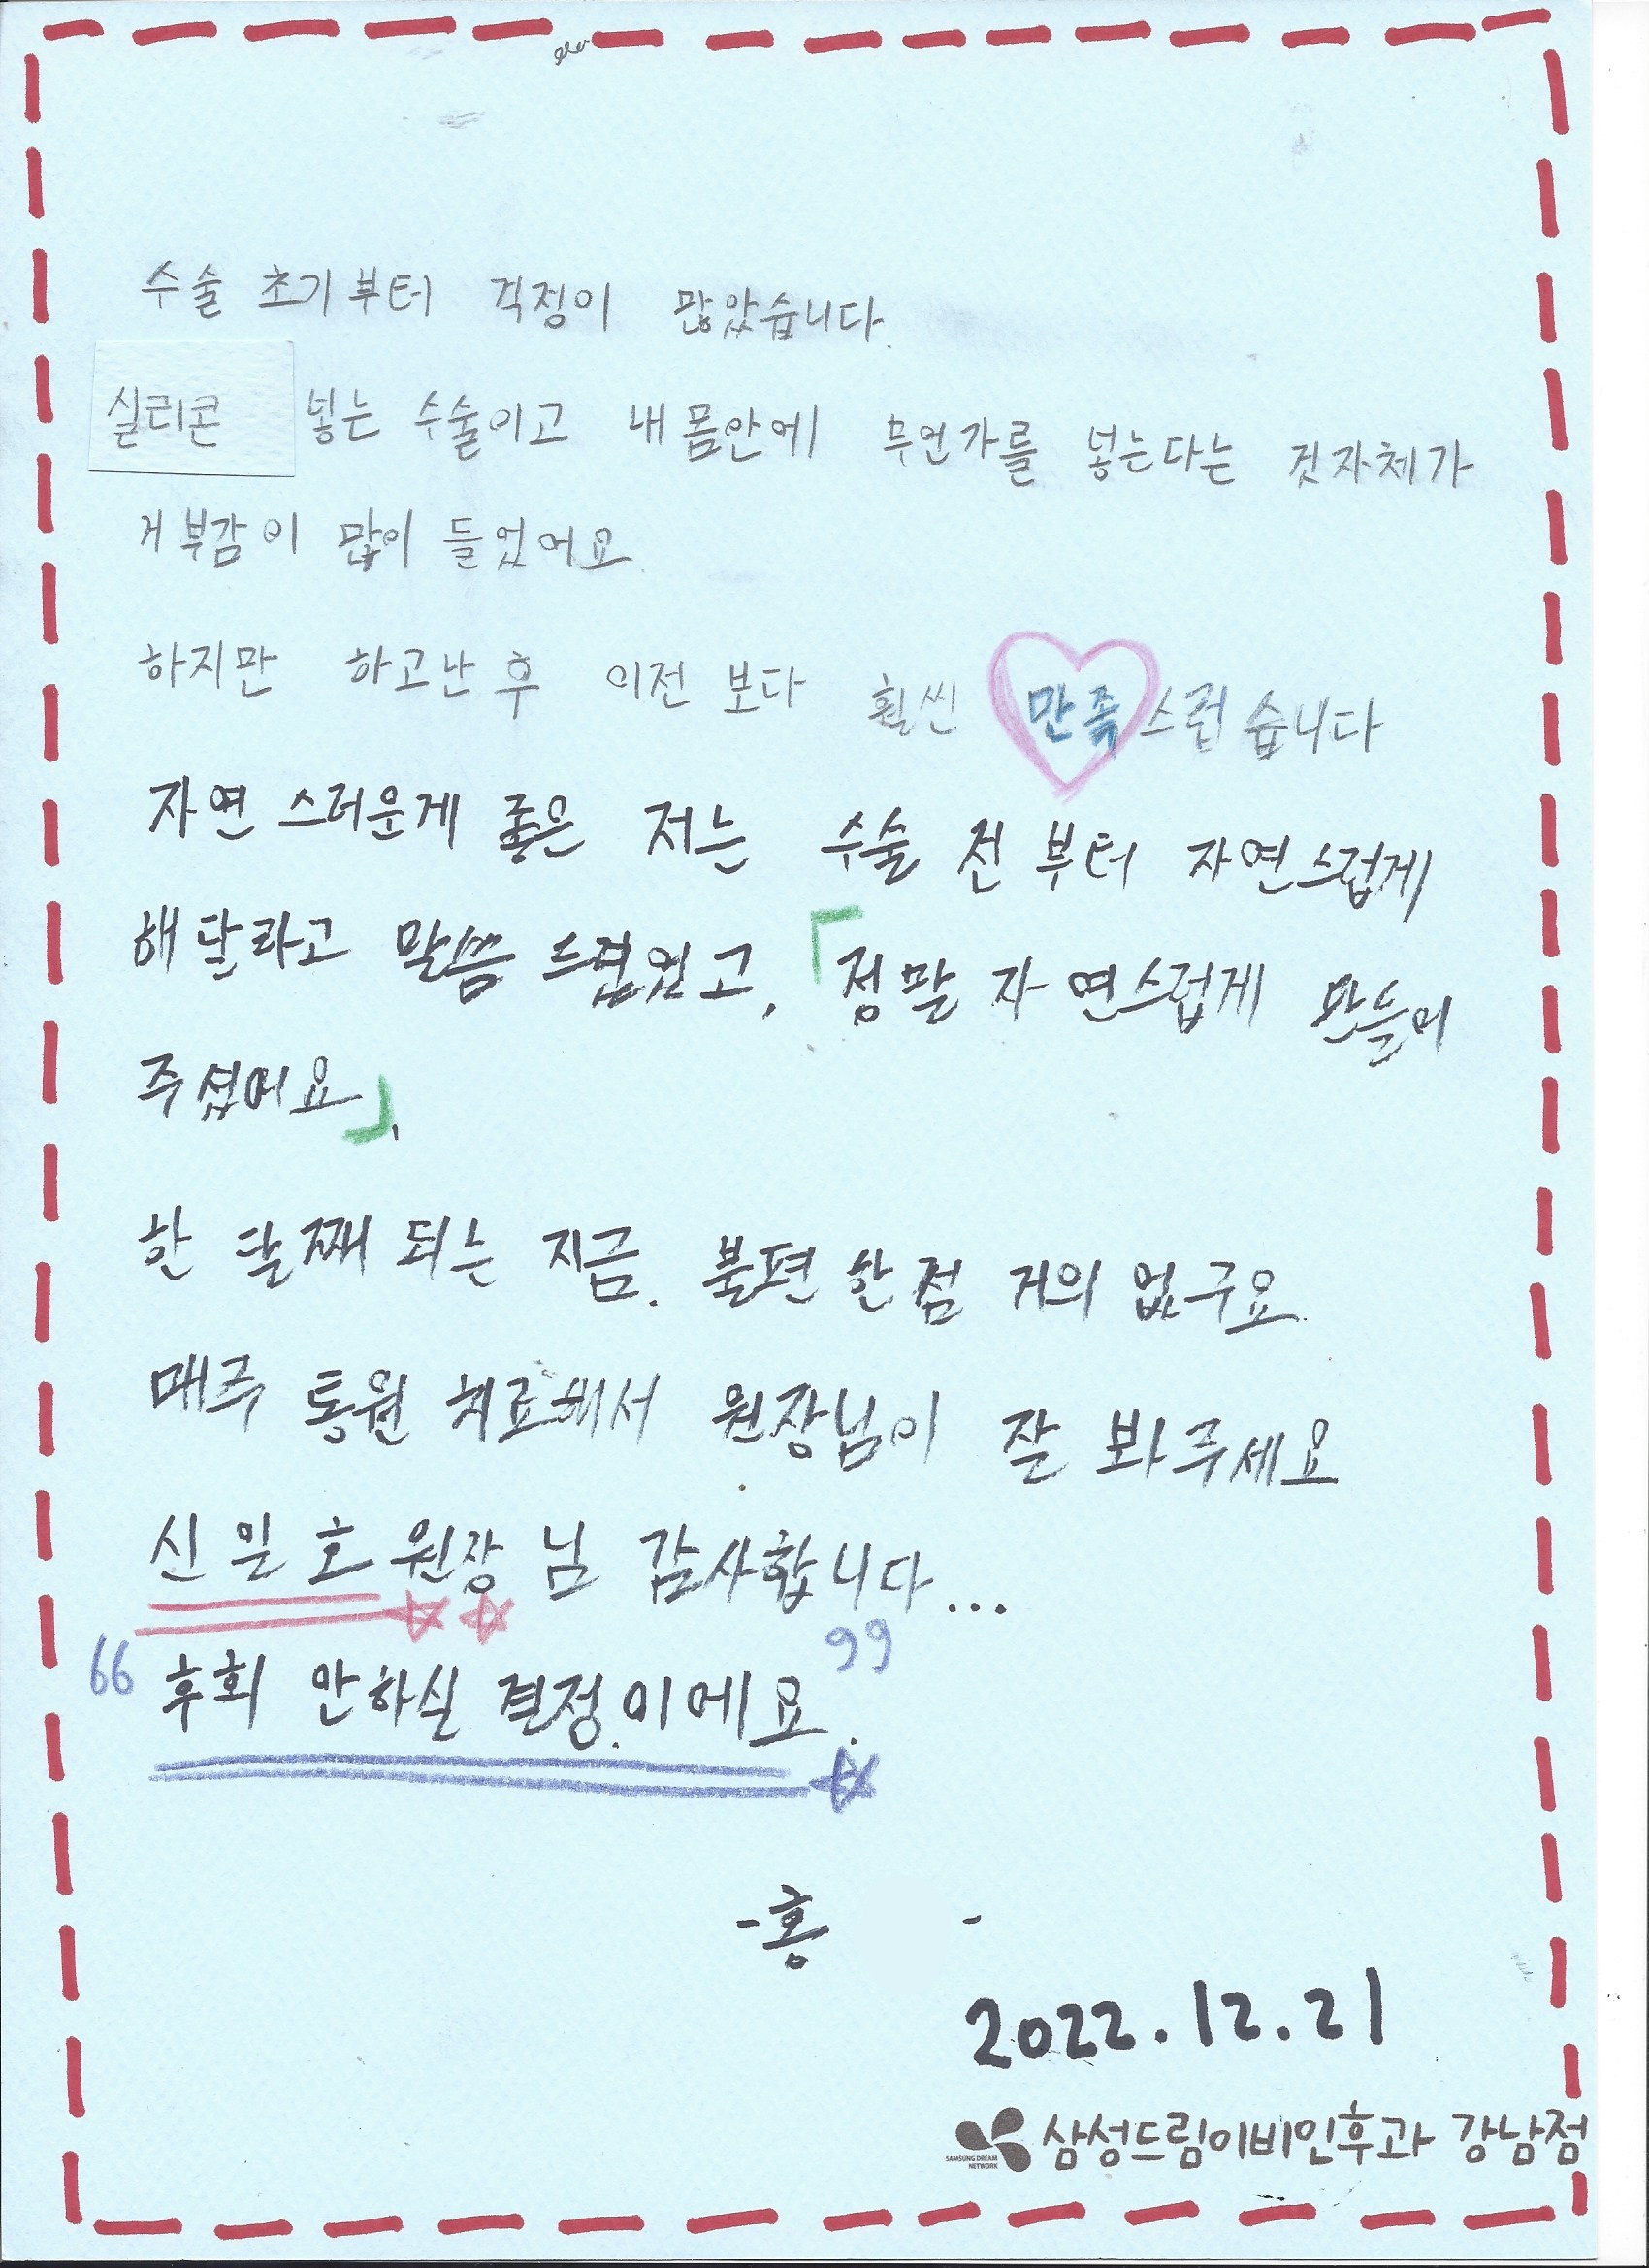 수술 초기부터 걱정이 많았습니다.
실리콘 넣는 수술이고 내 몸안에 무언가를 넣는다는 것자체가
거부감이 많이 들었어요.
하지만 하고난 후 이전 보다 훨씬 만족스럽습니다
자연스러운게 좋은 저는 수술 전부터 자연스럽게
해달라고 말씀드렸었고, 「정말 자연스럽게 만들어
주셨어요」.
한 달째 되는 지금. 불편한점 거의 없구요.
매주 통원 치료해서 원장님이 잘 봐주세요
신일호 원장님 감사합니다...
“후회 안하실 결정.이에요.”
-홍 -
2022.12.21
SAMSUNG DREAM NETWORK 삼성드림이비인후과 강남점